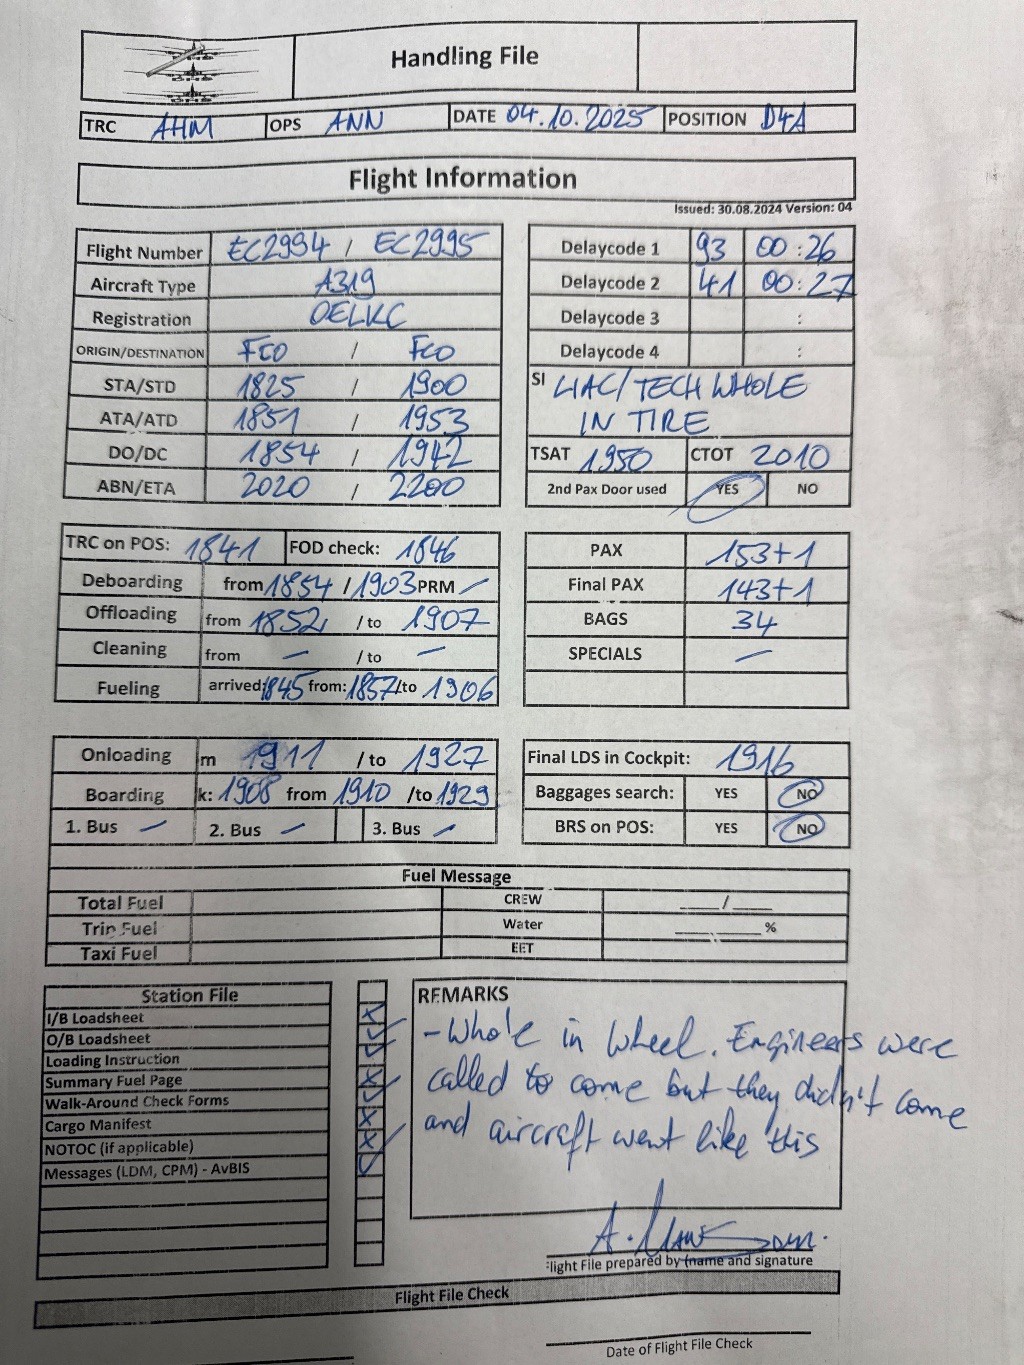 Handling File
TRC AHM OPS ANN DATE 04.10.2025 POSITION D4A
Flight Information
Issued: 30.08.2024 Version: 04
Flight Number EC2994 / EC2995
Aircraft Type A319
Registration OELKC
ORIGIN/DESTINATION FCO / FCO
STA/STD 1825 / 1900
ATA/ATD 1851 / 1953
DO/DC 1854 / 1942
ABN/ETA 2020 / 2200
Delaycode 1 93 00:26
Delaycode 2 41 00:27
Delaycode 3 :
Delaycode 4 :
SI LIAC/TECH WHOLE
IN TIRE
TSAT 1950 CTOT 2010
2nd Pax Door used YES NO
TRC on POS: 1841 FOD check: 1846
Deboarding from 1854 / 1903 PRM –
Offloading from 1852 / to 1907
Cleaning from – / to –
Fueling arrived: 1845 from: 1857 /to 1906
PAX 153+1
Final PAX 143+1
BAGS 34
SPECIALS –
Onloading m 1911 / to 1927
Boarding k: 1908 from 1910 /to 1929
1. Bus – 2. Bus – 3. Bus –
Final LDS in Cockpit: 1916
Baggages search: YES NO
BRS on POS: YES NO
Fuel Message
Total Fuel CREW ____/____
Trip Fuel Water ________%
Taxi Fuel EET
Station File
I/B Loadsheet
O/B Loadsheet
Loading Instruction
Summary Fuel Page
Walk-Around Check Forms
Cargo Manifest
NOTOC (if applicable)
Messages (LDM, CPM) - AvBIS
REMARKS
- Whole in Wheel. Engineers were
called to come but they didn't come
and aircraft went like this
light File prepared by (name and signature
Flight File Check
Date of Flight File Check